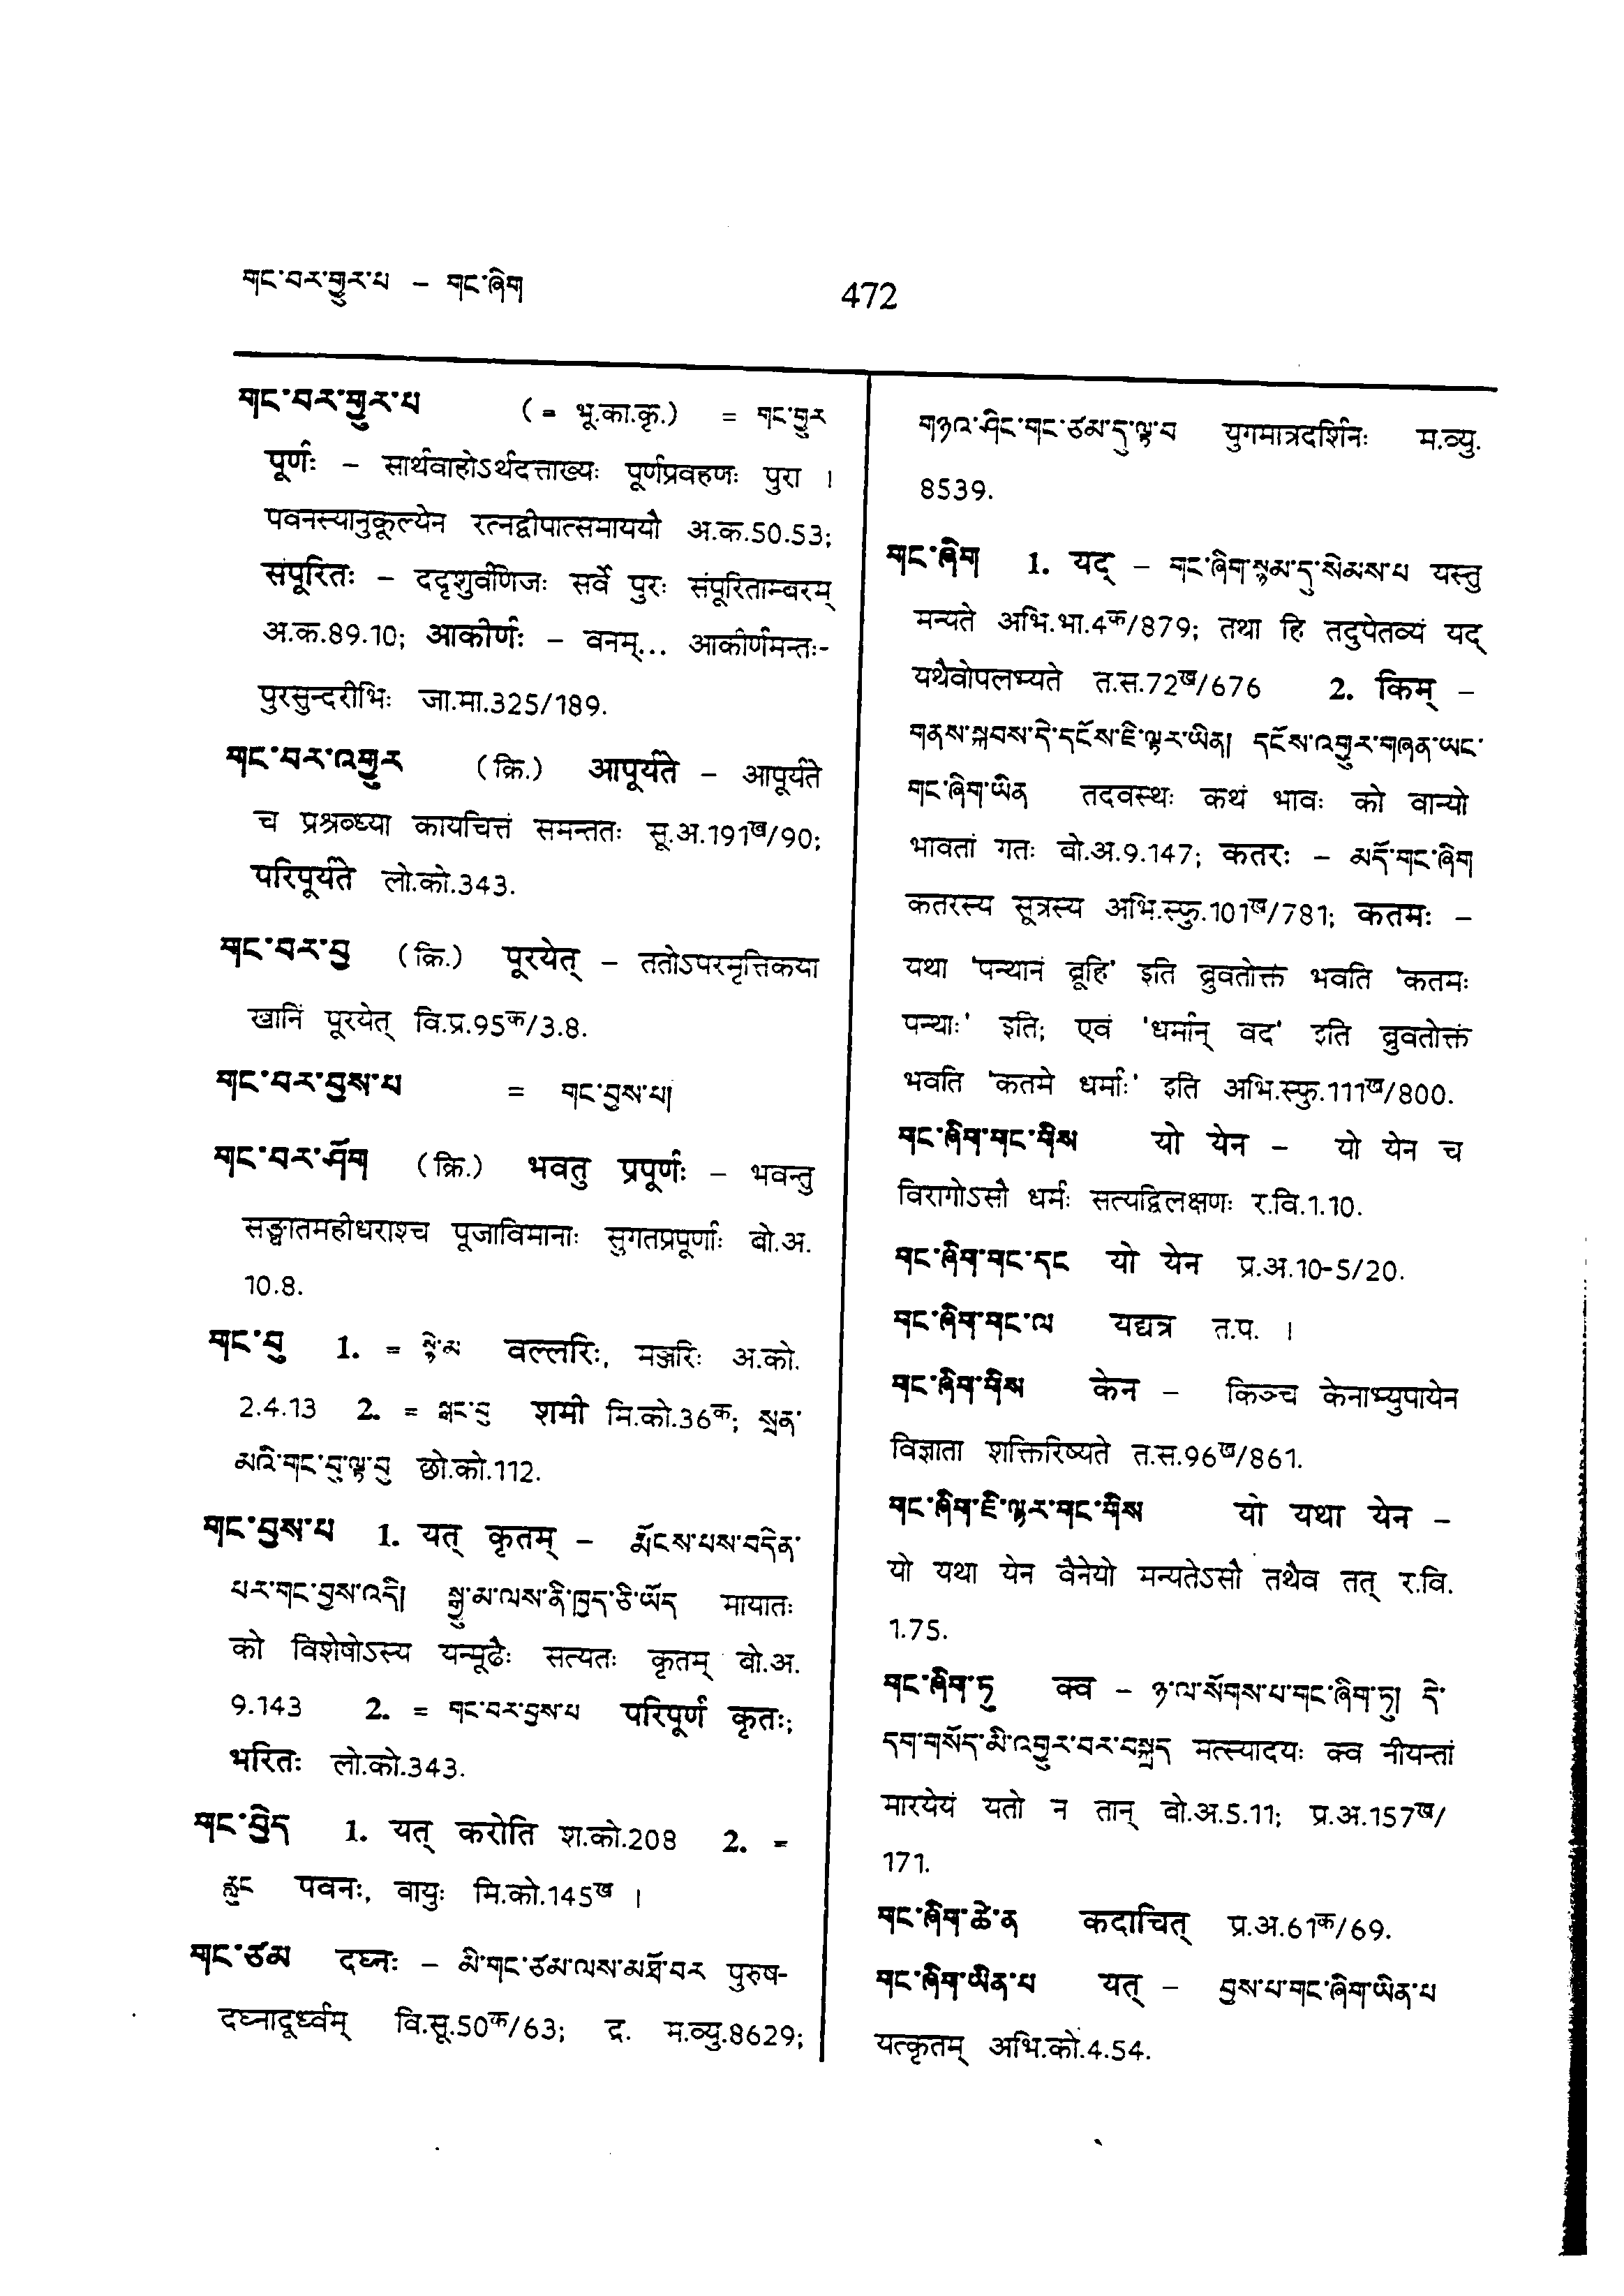 གང་བར་གྱུར་པ – གང་ཞིག
472
གང་བར་གྱུར་པ (= भू.का.कृ.) = གང་གྱུར
पूर्णः – सार्थवाहोऽर्थदत्ताख्यः पूर्णप्रवहणः पुरा ।
पवनस्यानुकूल्येन रत्नद्वीपात्समाययौ अ.क.50.53;
संपूरितः – ददृशुर्वणिजः सर्वे पुरः संपूरिताम्बरम्
अ.क.89.10; आकीर्णः – वनम्... आकीर्णमन्तः-
पुरसुन्दरीभिः जा.मा.325/189.
གང་བར་འགྱུར (क्रि.) आपूर्यते – आपूर्यते
च प्रश्रब्ध्या कायचित्तं समन्ततः सू.अ.191ख/90;
परिपूर्यते लो.को.343.
གང་བར་བྱ (क्रि.) पूरयेत् – ततोऽपरमृत्तिकया
खानिं पूरयेत् वि.प्र.95क/3.8.
གང་བར་བྱས་པ = གང་བྱས་པ།
གང་བར་ཤོག (क्रि.) भवतु प्रपूर्णः – भवन्तु
सङ्घातमहीधराश्च पूजाविमानाः सुगतप्रपूर्णाः बो.अ.
10.8.
གང་བུ 1. = སྙེ་མ वल्लरिः, मञ्जरिः अ.को.
2.4.13 2. = གྲང་བུ शमी मि.को.36क; སྲན་
མའི་གང་བུ་ལྟ་བུ छो.को.112.
གང་བྱས་པ 1. यत् कृतम् – རྨོངས་པས་བདེན་
པར་གང་བྱས་འདི། སྒྱུ་མ་ལས་ནི་ཁྱད་ཅི་ཡོད मायातः
को विशेषोऽस्य यन्मूढैः सत्यतः कृतम् बो.अ.
9.143 2. = གང་བར་བྱས་པ परिपूर्ण कृतः;
भरितः लो.को.343.
གང་བྱེད 1. यत् करोति श.को.208 2. =
རླུང पवनः, वायुः मि.को.145ख ।
གང་ཙམ दघ्नः – མི་གང་ཙམ་ལས་མཐོ་བར पुरुष-
दघ्नादूर्ध्वम् वि.सू.50क/63; द्र. म.व्यु.8629;
གཉའ་ཤིང་གང་ཙམ་དུ་ལྟ་བ युगमात्रदर्शिनः म.व्यु.
8539.
གང་ཞིག 1. यद् – གང་ཞིག་སྙམ་དུ་སེམས་པ यस्तु
मन्यते अभि.भा.4क/879; तथा हि तदुपेतव्यं यद्
यथैवोपलभ्यते त.स.72ख/676 2. किम् –
གནས་སྐབས་དེ་དངོས་ཇི་ལྟར་ཡིན། དངོས་འགྱུར་གཞན་ཡང་
གང་ཞིག་ཡིན तदवस्थः कथं भावः को वान्यो
भावतां गतः बो.अ.9.147; कतरः – མདོ་གང་ཞིག
कतरस्य सूत्रस्य अभि.स्फु.101ख/781; कतमः –
यथा 'पन्थानं ब्रूहि' इति ब्रुवतोक्तं भवति 'कतमः
पन्थाः' इति; एवं 'धर्मान् वद' इति ब्रुवतोक्तं
भवति 'कतमे धर्माः' इति अभि.स्फु.111ख/800.
གང་ཞིག་གང་གིས यो येन – यो येन च
विरागोऽसौ धर्मः सत्यद्विलक्षणः र.वि.1.10.
གང་ཞིག་གང་དང यो येन प्र.अ.10-5/20.
གང་ཞིག་གང་ལ यद्यत्र त.प. ।
གང་ཞིག་གིས केन – किञ्च केनाभ्युपायेन
विज्ञाता शक्तिरिष्यते त.स.96ख/861.
གང་ཞིག་ཇི་ལྟར་གང་གིས यो यथा येन –
यो यथा येन वैनेयो मन्यतेऽसौ तथैव तत् र.वि.
1.75.
གང་ཞིག་ཏུ क्व – ཉ་ལ་སོགས་པ་གང་ཞིག་ཏུ། དེ་
དག་གསོད་མི་འགྱུར་བར་བསྐྲད मत्स्यादयः क्व नीयन्तां
मारयेयं यतो न तान् बो.अ.5.11; प्र.अ.157ख/
171.
གང་ཞིག་ཚེ་ན कदाचित् प्र.अ.61क/69.
གང་ཞིག་ཡིན་པ यत् – བྱས་པ་གང་ཞིག་ཡིན་པ
यत्कृतम् अभि.को.4.54.